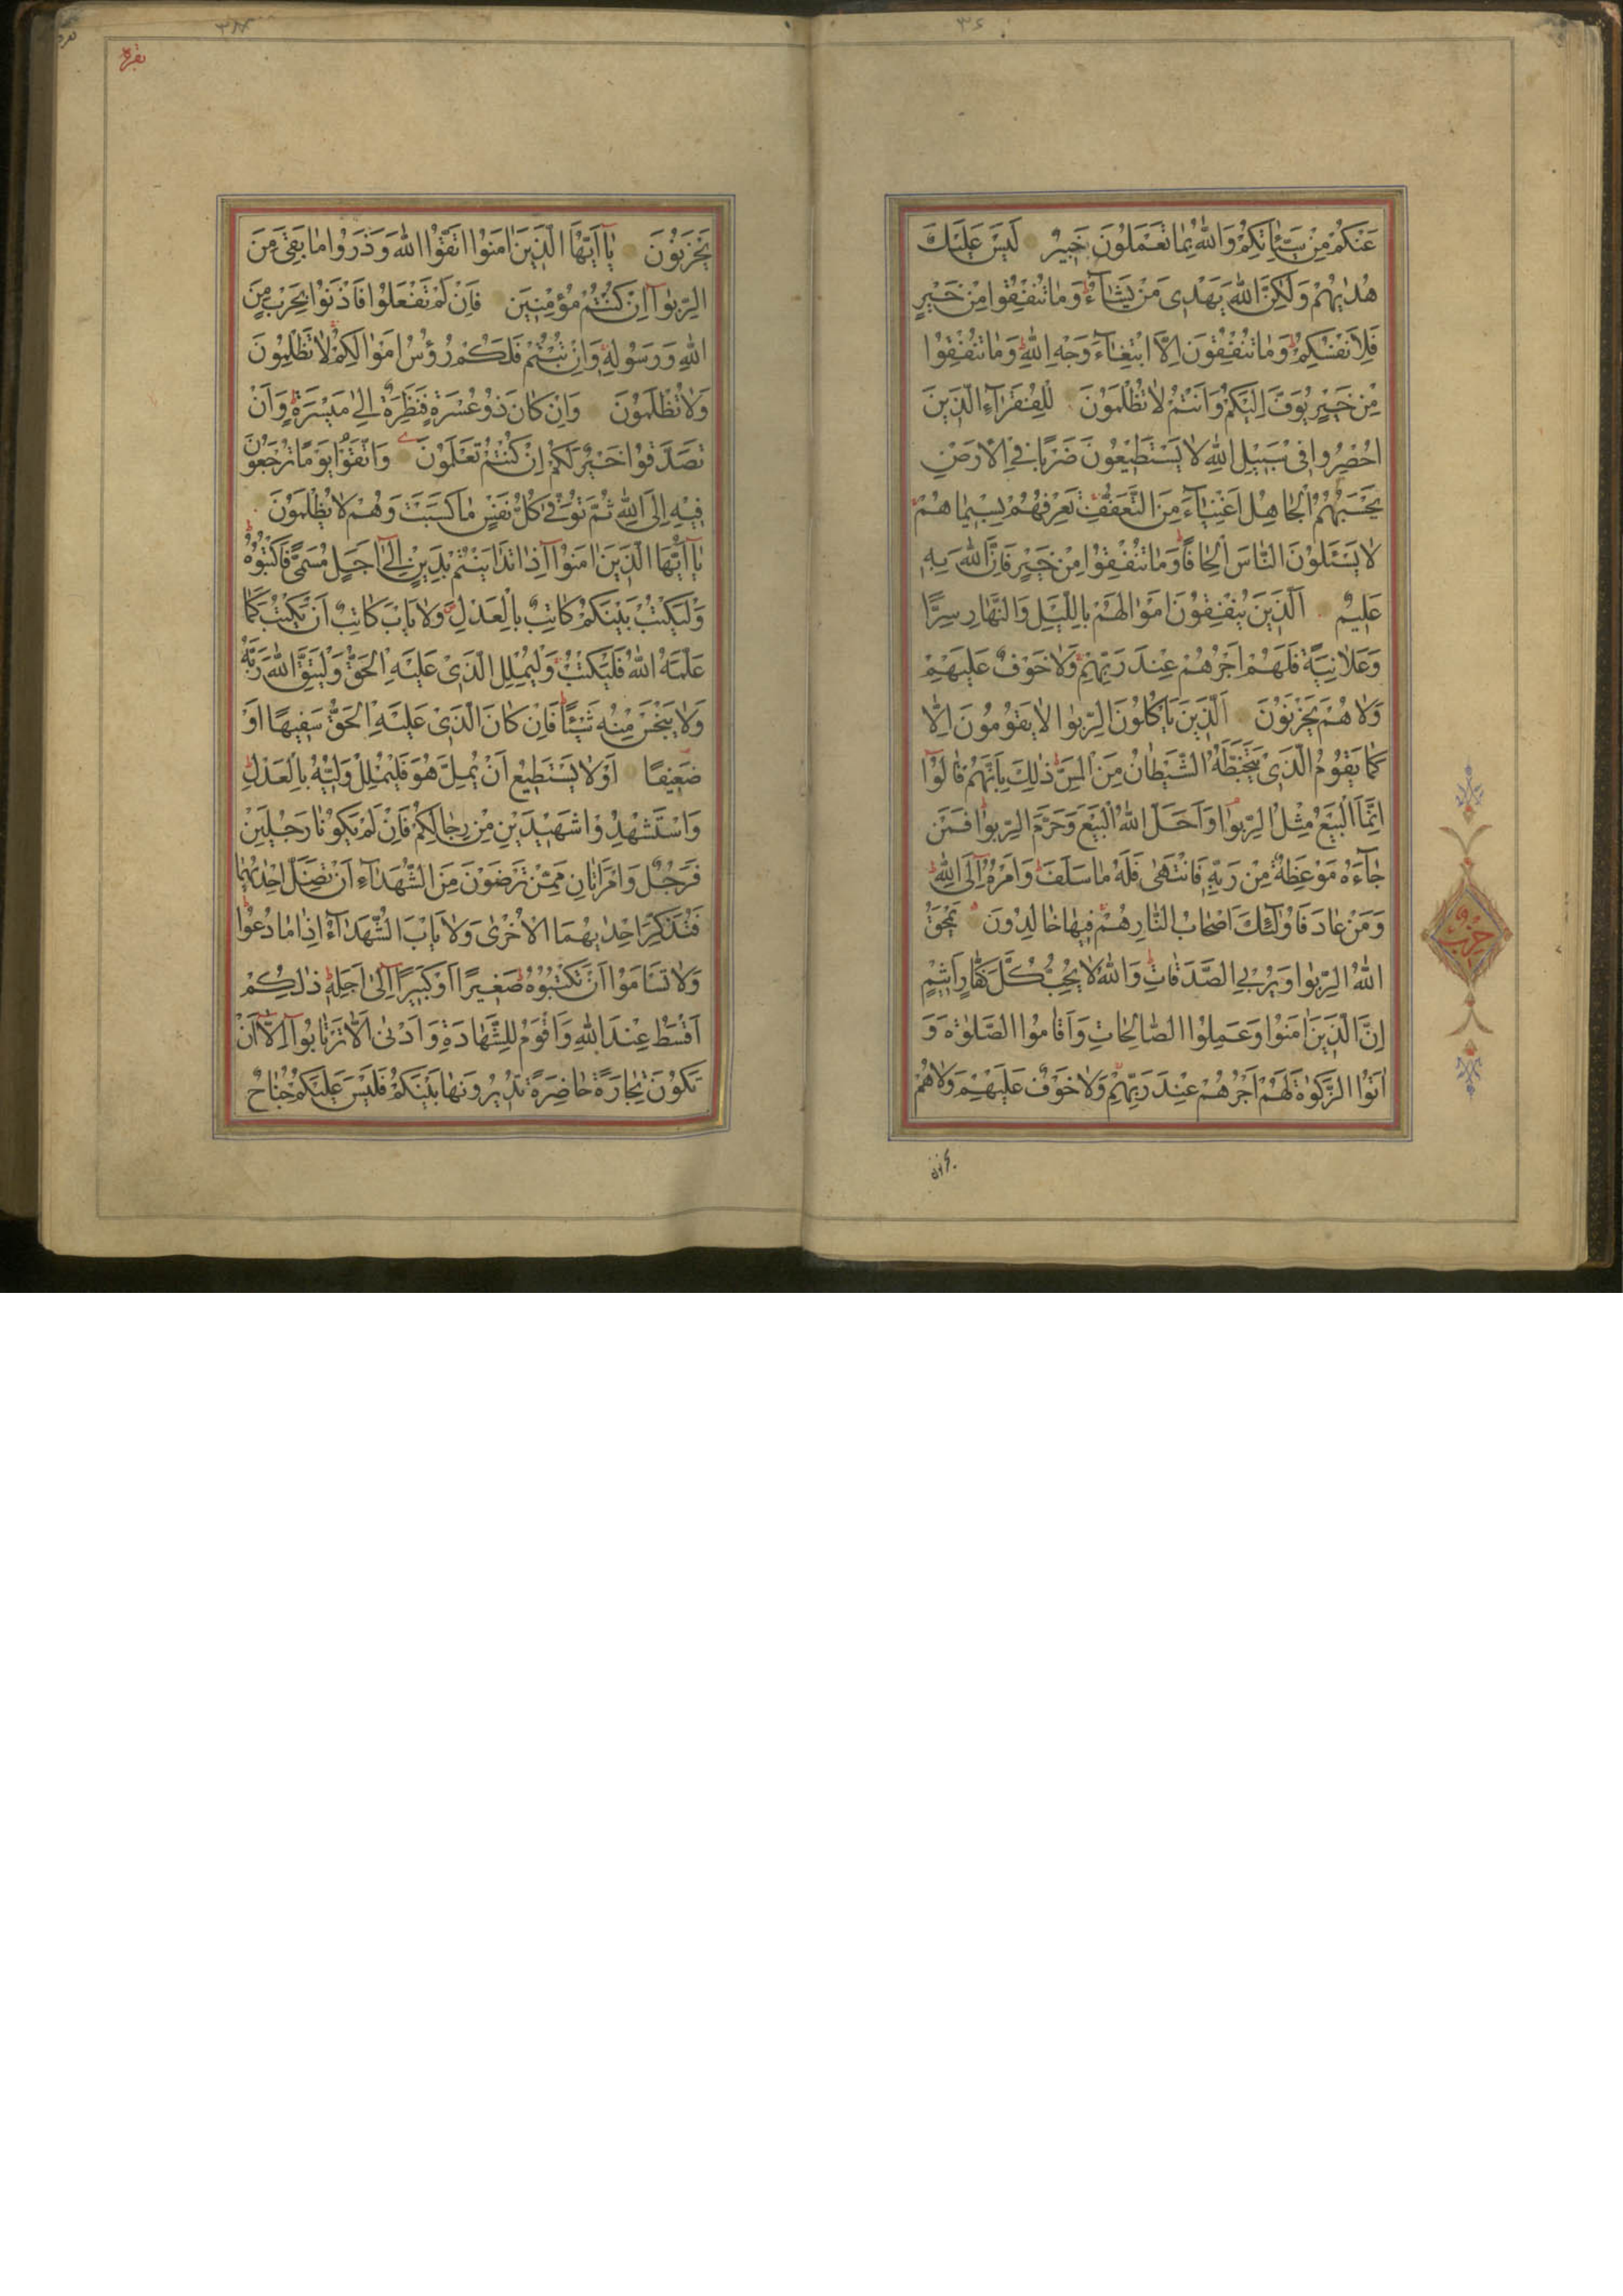 عَنْكُمْ مِنْ سَيِّئَاتِكُمْ وَاللّٰهُ بِمَا تَعْمَلُوْنَ خَبِيرٌ لَيْسَ عَلَيْكَ
هُدٰيهُمْ وَلٰكِنَّ اللّٰهَ يَهْدِى مَنْ يَشَآءُ وَمَا تُنْفِقُوا مِنْ خَيْرٍ
فَلِاَنْفُسِكُمْ وَمَا تُنْفِقُونَ اِلَّا ابْتِغَآءَ وَجْهِ اللّٰهِ وَمَا تُنْفِقُوا
مِنْ خَيْرٍ يُوَفَّ اِلَيْكُمْ وَاَنْتُمْ لَا تُظْلَمُوْنَ لِلْفُقَرَآءِ الَّذِيْنَ
اُحْصِرُوا فِى سَبِيلِ اللّٰهِ لَا يَسْتَطِيْعُونَ ضَرْبًا فِى الْاَرْضِ
يَحْسَبُهُمُ الْجَاهِلُ اَغْنِيَآءَ مِنَ التَّعَفُّفِ تَعْرِفُهُمْ بِسِيْمَاهُمْ
لَا يَسْئَلُوْنَ النَّاسَ اِلْحَافًا وَمَا تُنْفِقُوا مِنْ خَيْرٍ فَاِنَّ اللّٰهَ بِهِ
عَلِيْمٌ اَلَّذِيْنَ يُنْفِقُوْنَ اَمْوَالَهُمْ بِاللَّيْلِ وَالنَّهَارِ سِرًّا
وَعَلَانِيَةً فَلَهُمْ اَجْرُهُمْ عِنْدَ رَبِّهِمْ وَلَا خَوْفٌ عَلَيْهِمْ
وَلَا هُمْ يَحْزَنُوْنَ اَلَّذِيْنَ يَاْكُلُوْنَ الرِّبٰوا لَا يَقُوْمُوْنَ اِلَّا
كَمَا يَقُوْمُ الَّذِىْ يَتَخَبَّطُهُ الشَّيْطَانُ مِنَ الْمَسِّ ذٰلِكَ بِاَنَّهُمْ قَالُوْا
اِنَّمَا الْبَيْعُ مِثْلُ الرِّبٰوا وَاَحَلَّ اللّٰهُ الْبَيْعَ وَحَرَّمَ الرِّبٰوا فَمَنْ
جَآءَهُ مَوْعِظَةٌ مِنْ رَبِّهِ فَانْتَهٰى فَلَهُ مَا سَلَفَ وَاَمْرُهُ اِلَى اللّٰهِ
وَمَنْ عَادَ فَاُولٰئِكَ اَصْحَابُ النَّارِ هُمْ فِيْهَا خَالِدُوْنَ يَمْحَقُ
اللّٰهُ الرِّبٰوا وَيُرْبِى الصَّدَقَاتِ وَاللّٰهُ لَا يُحِبُّ كُلَّ كَفَّارٍ اَثِيْمٍ
اِنَّ الَّذِيْنَ اٰمَنُوْا وَعَمِلُوْا الصَّالِحَاتِ وَاَقَامُوا الصَّلٰوةَ وَ
اٰتَوُا الزَّكٰوةَ لَهُمْ اَجْرُهُمْ عِنْدَ رَبِّهِمْ وَلَا خَوْفٌ عَلَيْهِمْ وَلَا هُمْ
حزب
يحزنون
بقره
يَحْزَنُوْنَ يَآ اَيُّهَا الَّذِيْنَ اٰمَنُوْا اتَّقُوْا اللّٰهَ وَذَرُوْا مَا بَقِىَ مِنَ
الرِّبٰوآ اِنْ كُنْتُمْ مُؤْمِنِيْنَ فَاِنْ لَمْ تَفْعَلُوْا فَاْذَنُوْا بِحَرْبٍ مِنَ
اللّٰهِ وَرَسُوْلِهِ وَاِنْ تُبْتُمْ فَلَكُمْ رُؤُسُ اَمْوَالِكُمْ لَا تَظْلِمُوْنَ
وَلَا تُظْلَمُوْنَ وَاِنْ كَانَ ذُوْ عُسْرَةٍ فَنَظِرَةٌ اِلٰى مَيْسَرَةٍ وَاَنْ
تَصَدَّقُوْا خَيْرٌ لَكُمْ اِنْ كُنْتُمْ تَعْلَمُوْنَ وَاتَّقُوْا يَوْمًا تُرْجَعُوْنَ
فِيْهِ اِلَى اللّٰهِ ثُمَّ تُوَفّٰى كُلُّ نَفْسٍ مَا كَسَبَتْ وَهُمْ لَا يُظْلَمُوْنَ
يَآ اَيُّهَا الَّذِيْنَ اٰمَنُوْآ اِذَا تَدَايَنْتُمْ بِدَيْنٍ اِلٰى اَجَلٍ مُسَمًّى فَاكْتُبُوْهُ
وَلْيَكْتُبْ بَيْنَكُمْ كَاتِبٌ بِالْعَدْلِ وَلَا يَاْبَ كَاتِبٌ اَنْ يَكْتُبَ كَمَا
عَلَّمَهُ اللّٰهُ فَلْيَكْتُبْ وَلْيُمْلِلِ الَّذِىْ عَلَيْهِ الْحَقُّ وَلْيَتَّقِ اللّٰهَ رَبَّهُ
وَلَا يَبْخَسْ مِنْهُ شَيْئًا فَاِنْ كَانَ الَّذِىْ عَلَيْهِ الْحَقُّ سَفِيْهًا اَوْ
ضَعِيْفًا اَوْ لَا يَسْتَطِيْعُ اَنْ يُمِلَّ هُوَ فَلْيُمْلِلْ وَلِيُّهُ بِالْعَدْلِ
وَاسْتَشْهِدُوْا شَهِيْدَيْنِ مِنْ رِجَالِكُمْ فَاِنْ لَمْ يَكُوْنَا رَجُلَيْنِ
فَرَجُلٌ وَامْرَاَتَانِ مِمَّنْ تَرْضَوْنَ مِنَ الشُّهَدَآءِ اَنْ تَضِلَّ اِحْدٰيهُمَا
فَتُذَكِّرَ اِحْدٰيهُمَا الْاُخْرٰى وَلَا يَاْبَ الشُّهَدَآءُ اِذَا مَا دُعُوْا
وَلَا تَسْاَمُوْا اَنْ تَكْتُبُوْهُ صَغِيْرًا اَوْ كَبِيْرًا اِلٰى اَجَلِهِ ذٰلِكُمْ
اَقْسَطُ عِنْدَ اللّٰهِ وَاَقْوَمُ لِلشَّهَادَةِ وَاَدْنٰى اَلَّا تَرْتَابُوْآ اِلَّآ اَنْ
تَكُوْنَ تِجَارَةً حَاضِرَةً تُدِيْرُوْنَهَا بَيْنَكُمْ فَلَيْسَ عَلَيْكُمْ جُنَاحٌ